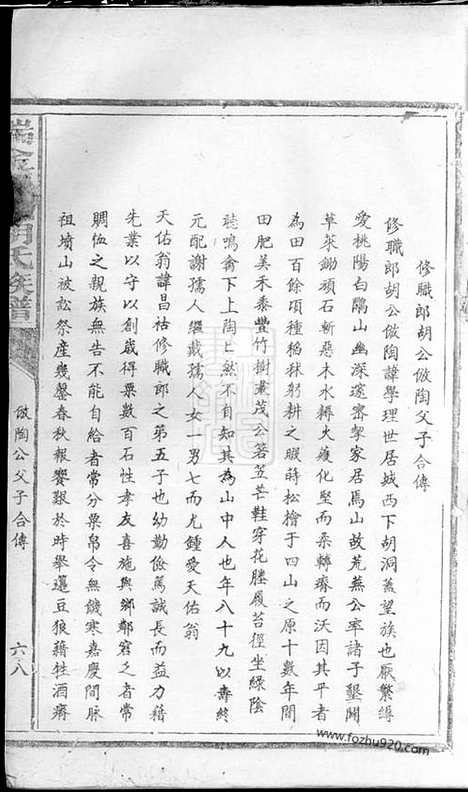 修職郎胡公倣陶父子合傳
修職郎胡公倣陶諱學理世居城西下胡洞蓋望族也厭繁縟
愛桃陽白鵰山幽深邃密挈家居焉山故荒蕪公率諸子墾闢
草萊鋤頑石斬惡木水耨火穫化堅而柔轉瘠而沃因其平者
為田百餘頃種稻秫躬耕之暇蒔松檜于四山之原十數年間
田肥美禾黍豐竹樹叢茂公箬笠芒鞋穿花塍履苔徑坐綠陰
聽鳴禽下上陶々然不自知其為山中人也年八十九以壽終
元配謝孺人繼戴孺人女一男七而尤鍾愛天佑翁
天佑翁諱昌祜修職郎之第五子也幼勤儉篤誠長而益力藉
先業以守以創歲得粟數百石性孝友喜施與鄉鄰窘之者常
賙恤之親族無告不能自給者常分粟帛令無饑寒嘉慶間脈
祖墳山被訟祭產幾罄春秋報饗艱於時舉籩豆狼藉牲酒瘠
瑞金 胡氏族譜
倣陶公父子合傳
六八
www.fozhu920.com